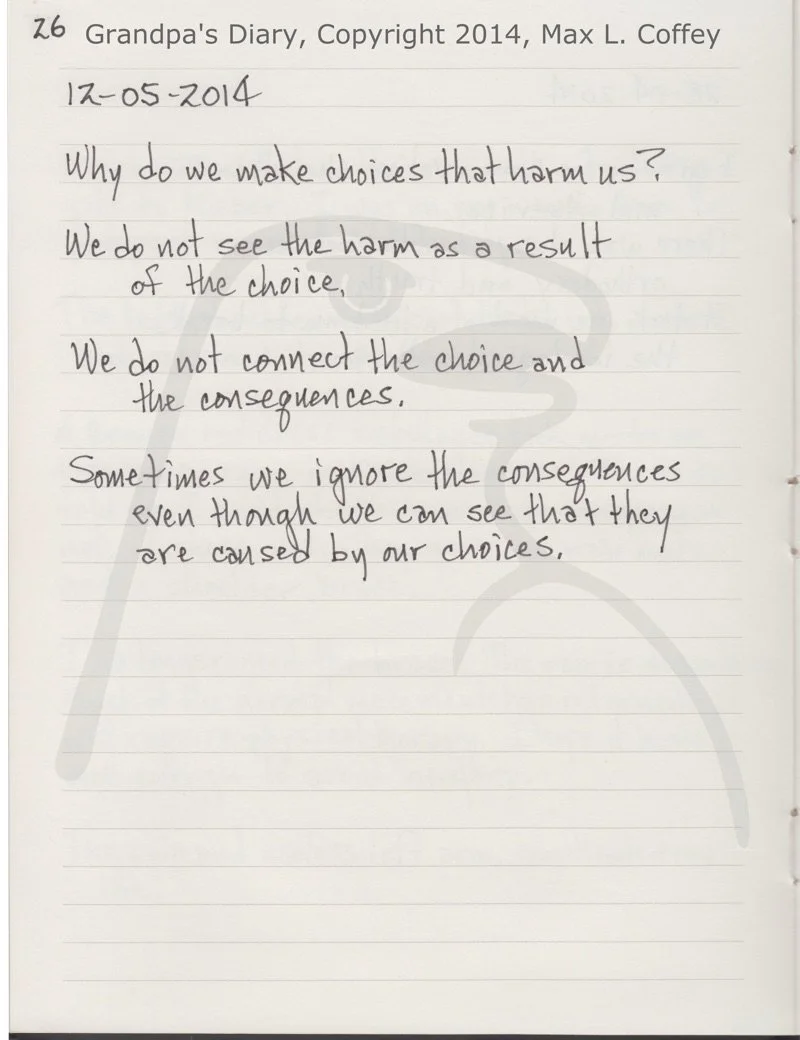 26 Grandpa's Diary, Copyright 2014, Max L. Coffey
12-05-2014
Why do we make choices that harm us?
We do not see the harm as a result
of the choice.
We do not connect the choice and
the consequences.
Sometimes we ignore the consequences
even though we can see that they
are caused by our choices.